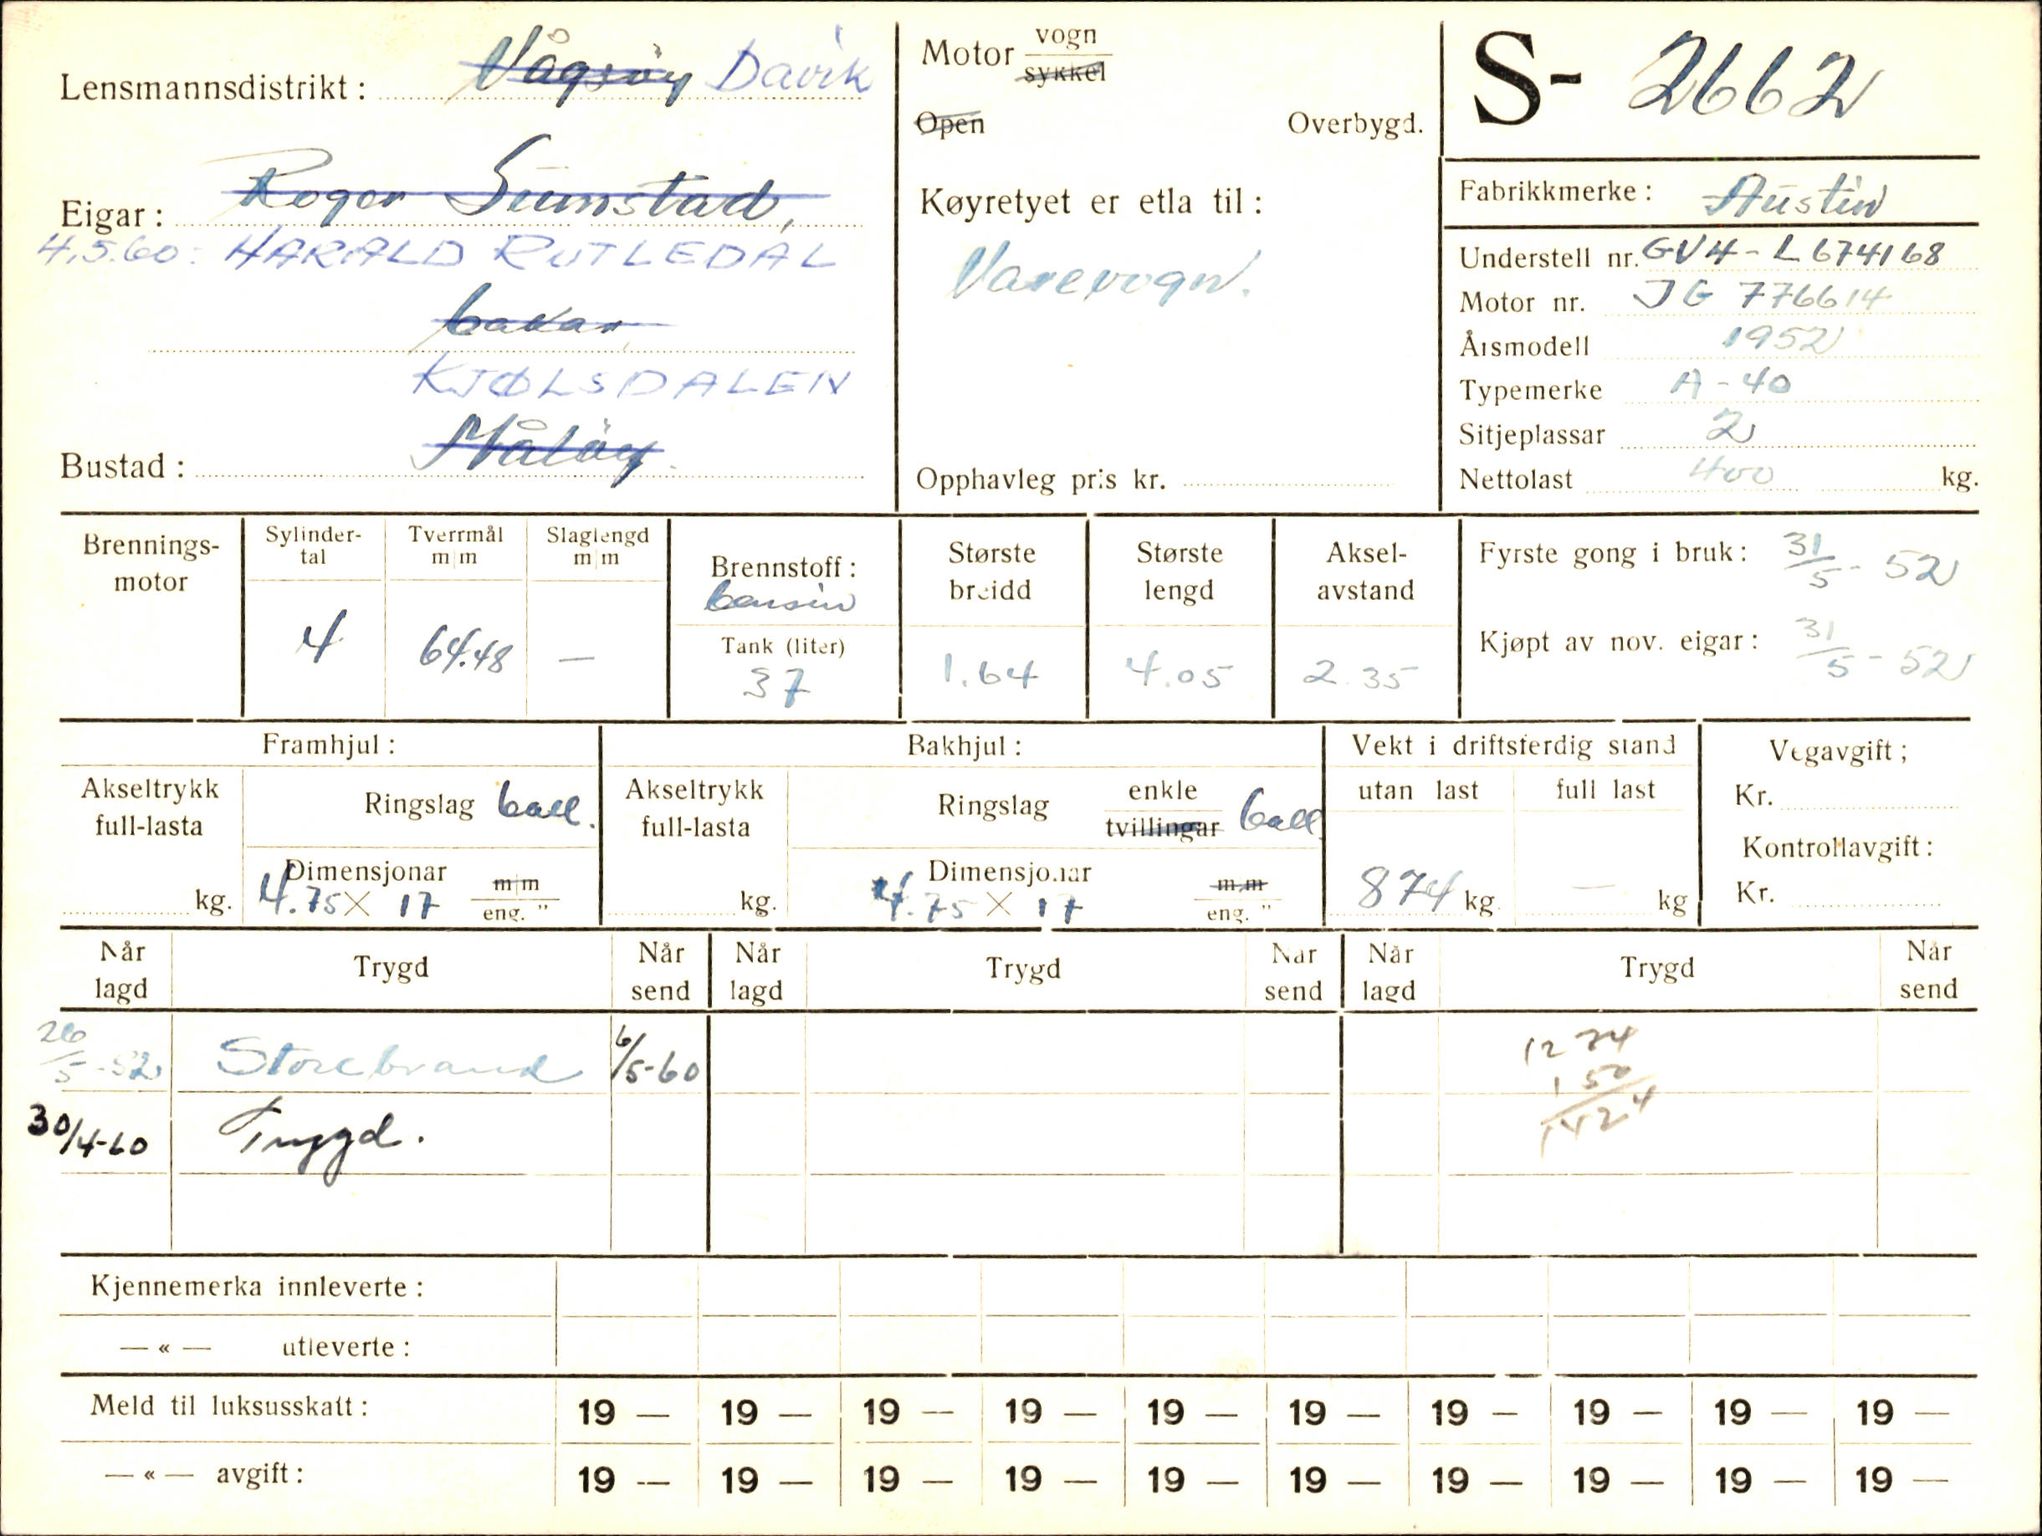 Lensmannsdistrikt: Vågsöy Davik
Eigar: Roger Sunstad,
4.5.60: HARALD RUTLEDAL
bakar,
KJØLSDALEN
Bustad: Måløy.
Motor vogn
sykkel
Open Overbygd.
Køyretyet er etla til:
Varevogn.
Opphavleg pris kr.
S- 2662
Fabrikkmerke: Austin
Understell nr. GV4-L674168
Motor nr. JG 776614
Årsmodell 1952
Typemerke A-40
Sitjeplassar 2
Nettolast 400 kg.
Brennings-
motor
Sylinder-
tal
4
Tverrmål
m/m
64.48
Slaglengd
m/m
—
Brennstoff:
bensin
Tank (liter)
37
Største
breidd
1.64
Største
lengd
4.05
Aksel-
avstand
2.35
Fyrste gong i bruk: 31/5-52
Kjøpt av nov. eigar: 31/5-52
Framhjul:
Akseltrykk
full-lasta
kg.
Ringslag ball.
Dimensjonar m/m
4.75 × 17 eng. "
Bakhjul:
Akseltrykk
full-lasta
kg.
Ringslag enkle
tvillingar ball
Dimensjonar m/m
4.75 × 17 eng. "
Vekt i driftsferdig stand
utan last full last
874 kg. — kg
Vegavgift;
Kr.
Kontrollavgift:
Kr.
Når
lagd
Trygd
Når
send
Når
lagd
Trygd
Når
send
Når
lagd
Trygd
Når
send
26/5-52 Storebrand 6/5-60
30/4-60 Trygd.
1274
150
1424
Kjennemerka innleverte:
— « — utleverte:
Meld til luksusskatt: 19 — 19 — 19 — 19 — 19 — 19 — 19 — 19 — 19 — 19 —
— « — avgift: 19 — 19 — 19 — 19 — 19 — 19 — 19 — 19 — 19 — 19 —